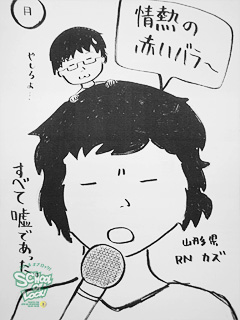 月
情熱の
赤いバラ〜
やしろよ…
すべて嘘であった
山形県
RN カズ
SCHOOL
OF
LOCK!